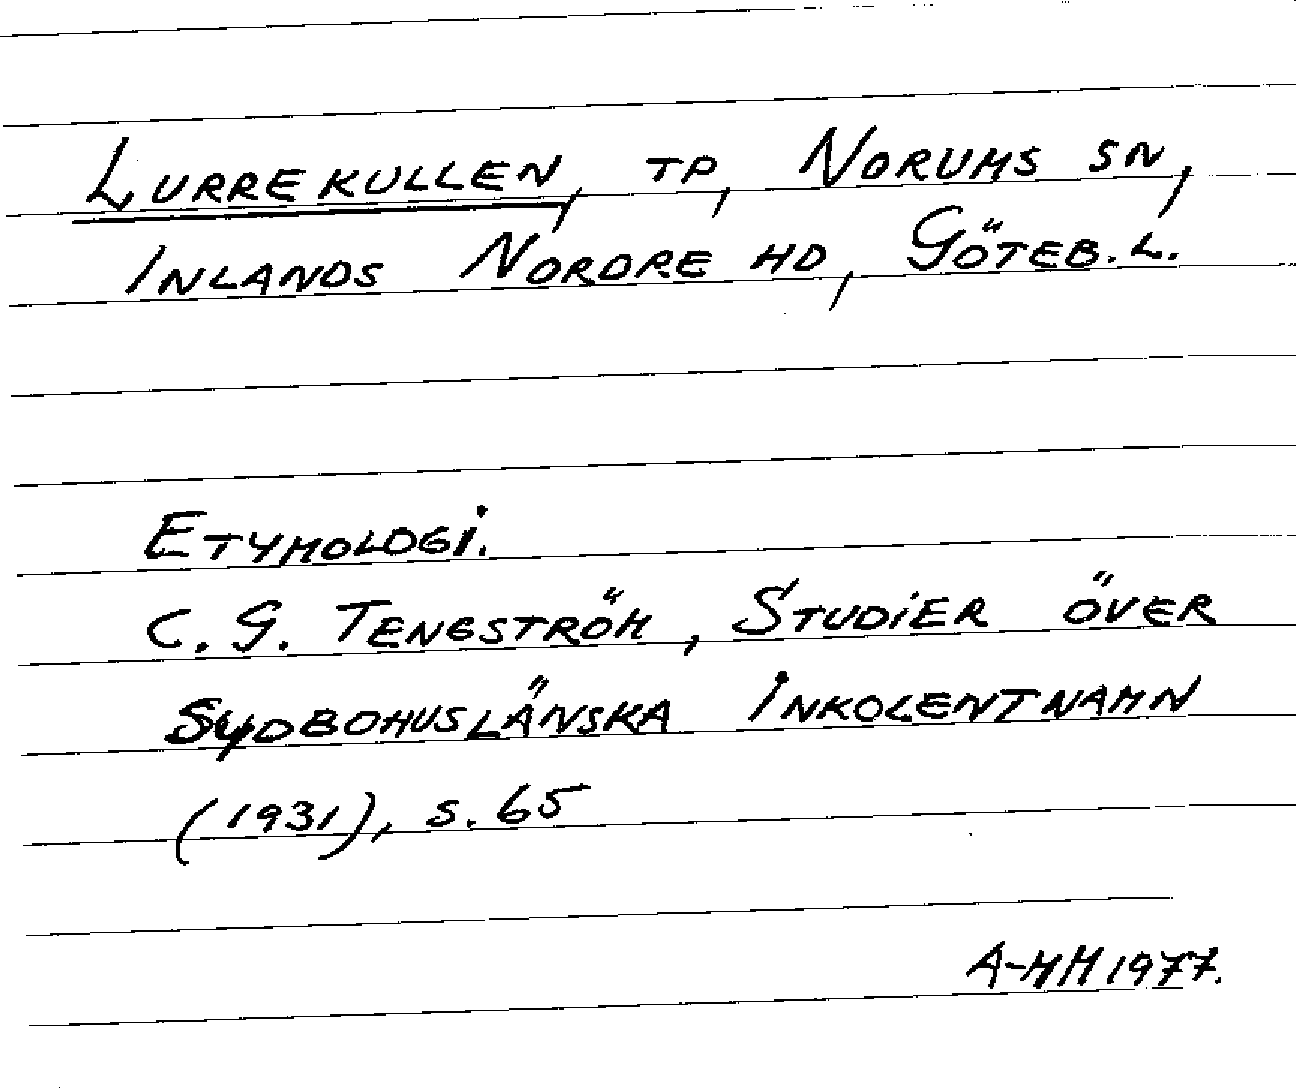 LURREKULLEN, TP, NORUMS SN,
INLANDS NORDRE HD, GÖTEB. L.
ETYMOLOGI.
C. G. TENGSTRÖM, STUDIER ÖVER
SYDBOHUSLÄNSKA INKOLENTNAMN
(1931), S. 65
A-MM 1977.